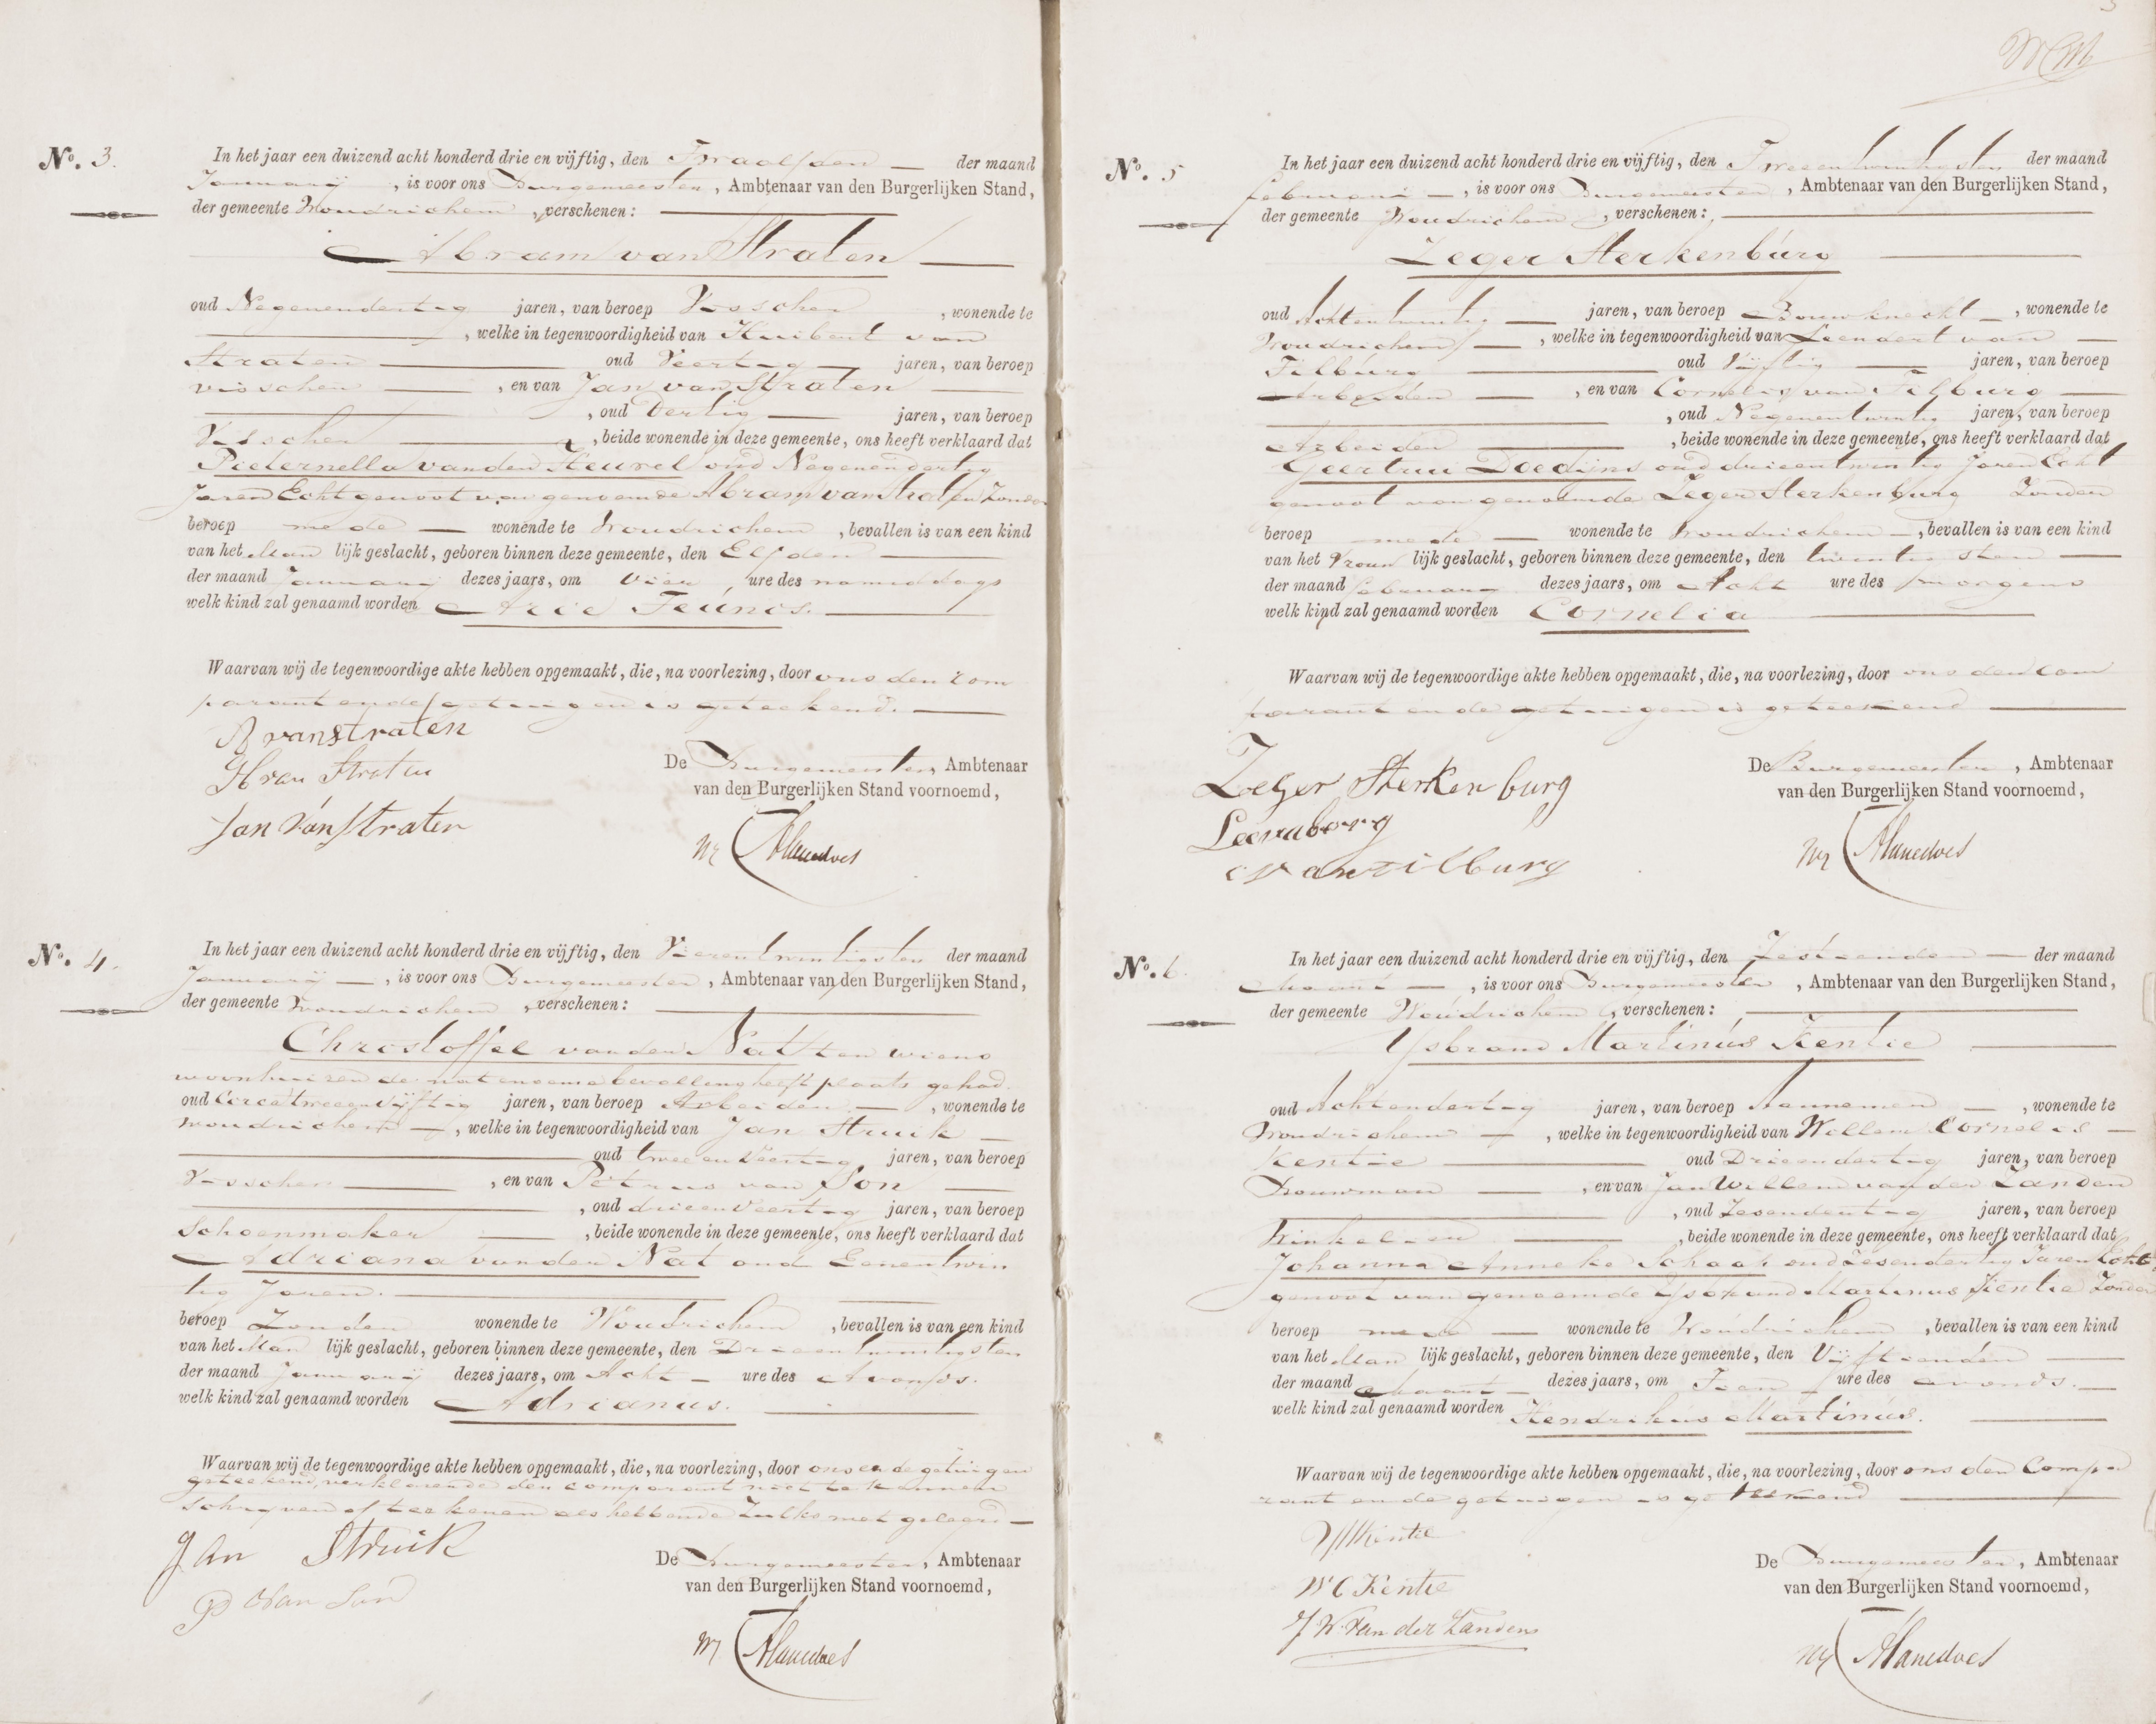 No. 3.
In het jaar een duizend acht honderd drie en vijftig, den Twaalfden der maand
Januarij, is voor ons Burgemeester, Ambtenaar van den Burgerlijken Stand,
der gemeente Woudrichem, verschenen:
Abram van Straten
oud Negenendertig jaren, van beroep Visscher, wonende te
, welke in tegenwoordigheid van Huibert van
Straten oud Veertig jaren, van beroep
visscher, en van Jan van Straten
, oud Dertig jaren, van beroep
Visscher, beide wonende in deze gemeente, ons heeft verklaard dat
Pieternella van den Heuvel oud Negenendertig
Jaren Echtgenoot van genoemde Abram van Straten Zonder
beroep mede wonende te Woudrichem, bevallen is van een kind
van het Man lijk geslacht, geboren binnen deze gemeente, den Elfden
der maand Januarij dezes jaars, om Vier ure des namiddags
welk kind zal genaamd worden Arie Teunis.
Waarvan wij de tegenwoordige akte hebben opgemaakt, die, na voorlezing, door ons den com
parant en de getuigen is geteekend.
A van straten
H van Straten
Jan Van Straten
De Burgemeester, Ambtenaar
van den Burgerlijken Stand voornoemd,
No. 4.
In het jaar een duizend acht honderd drie en vijftig, den Vierentwintigsten der maand
Januarij, is voor ons Burgemeester, Ambtenaar van den Burgerlijken Stand,
der gemeente Woudrichem, verschenen:
Christoffel van der Nat ten wiens
woonhuizen de natenoeme bevalling heeft plaats gehad.
oud Circa tweeenvijftig jaren, van beroep Arbeider, wonende te
Woudrichem, welke in tegenwoordigheid van Jan Struik
oud twee en Veertig jaren, van beroep
Visscher, en van Petrus van Son
, oud drieenveertig jaren, van beroep
Schoenmaker, beide wonende in deze gemeente, ons heeft verklaard dat
Adriana van der Nat oud Eenentwin
tig Jaren.
beroep Zonder wonende te Woudrichem, bevallen is van een kind
van het Man lijk geslacht, geboren binnen deze gemeente, den Drieentwintigsten
der maand Januarij dezes jaars, om Acht ure des Avonds.
welk kind zal genaamd worden Adrianus.
Waarvan wij de tegenwoordige akte hebben opgemaakt, die, na voorlezing, door ons en de getuigen
geteekend, verklarende den comparant niet te kunnen
schryven of teekenen als hebbende Zulks niet geleerd
Jan Struik
P Van Son
De Burgemeester, Ambtenaar
van den Burgerlijken Stand voornoemd,
No. 5
In het jaar een duizend acht honderd drie en vijftig, den Tweeentwintigsten der maand
februari, is voor ons Burgemeester, Ambtenaar van den Burgerlijken Stand,
der gemeente Woudrichem, verschenen:
Zeger Sterkenburg
oud Achtentwintig jaren, van beroep Bouwknecht, wonende te
Woudrichem, welke in tegenwoordigheid van Leendert van
Tilburg oud Vijftig jaren, van beroep
Arbeider, en van Cornelis van Tilburg
, oud Negenentwintig jaren, van beroep
Arbeider, beide wonende in deze gemeente, ons heeft verklaard dat
Geertrui Doedijns oud drieentwintig Jaren Echt
genoot van genoemde Zeger Sterkenburg Zonder
beroep mede wonende te Woudrichem, bevallen is van een kind
van het Vrouw lijk geslacht, geboren binnen deze gemeente, den twintigsten
der maand februarij dezes jaars, om Acht ure des morgens
welk kind zal genaamd worden Cornelia
Waarvan wij de tegenwoordige akte hebben opgemaakt, die, na voorlezing, door ons den com
parant en de getuigen is geteekend
Zeger Sterkenburg
C van tilburg
De Burgemeester, Ambtenaar
van den Burgerlijken Stand voornoemd,
No. 6
In het jaar een duizend acht honderd drie en vijftig, den Zestienden der maand
Maart, is voor ons Burgemeester, Ambtenaar van den Burgerlijken Stand,
der gemeente Woudrichem, verschenen:
Ysbrand Martinus Kentie
oud Achtendertig jaren, van beroep Aannemer, wonende te
Woudrichem, welke in tegenwoordigheid van Willem Cornelis
Kentie oud Drieendertig jaren, van beroep
Bouwman, en van Jan Willem van der Zanden
, oud Zesendertig jaren, van beroep
Winkelier, beide wonende in deze gemeente, ons heeft verklaard dat
Johanna Anneke Schaap oud Zesendertig Jaren Echt
genoot van genoemde Ysbrand Martinus Kentie Zonder
beroep mede wonende te Woudrichem, bevallen is van een kind
van het Man lijk geslacht, geboren binnen deze gemeente, den Vijftienden
der maand Maart dezes jaars, om Tien ure des avonds.
welk kind zal genaamd worden Hendrikus Martinus.
Waarvan wij de tegenwoordige akte hebben opgemaakt, die, na voorlezing, door ons den Compa
rant en de getuigen is geteekend
YM Kentie
W C Kentie
J W van der Zanden
De Burgemeester, Ambtenaar
van den Burgerlijken Stand voornoemd,